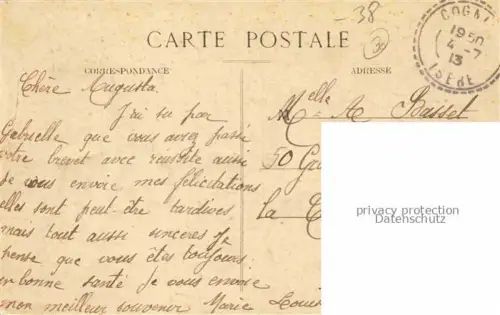 -38
3
CARTE POSTALE
CORRESPONDANCE
ADRESSE
COGN
1950
4-7
13
ISERE
Chère Augusta.
J'ai su par
Gabrielle que vous aviez passé
votre brevet avec reussite aussi
Je vous envoie mes félicitations
elles sont peut-être tardives
mais tout aussi sinceres Je
pense que vous êtes toujours
en bonne santé Je vous envoie
mon meilleur souvenir Marie Louis
Melle A Basset
50 Gr
la
privacy protection
Datenschutz